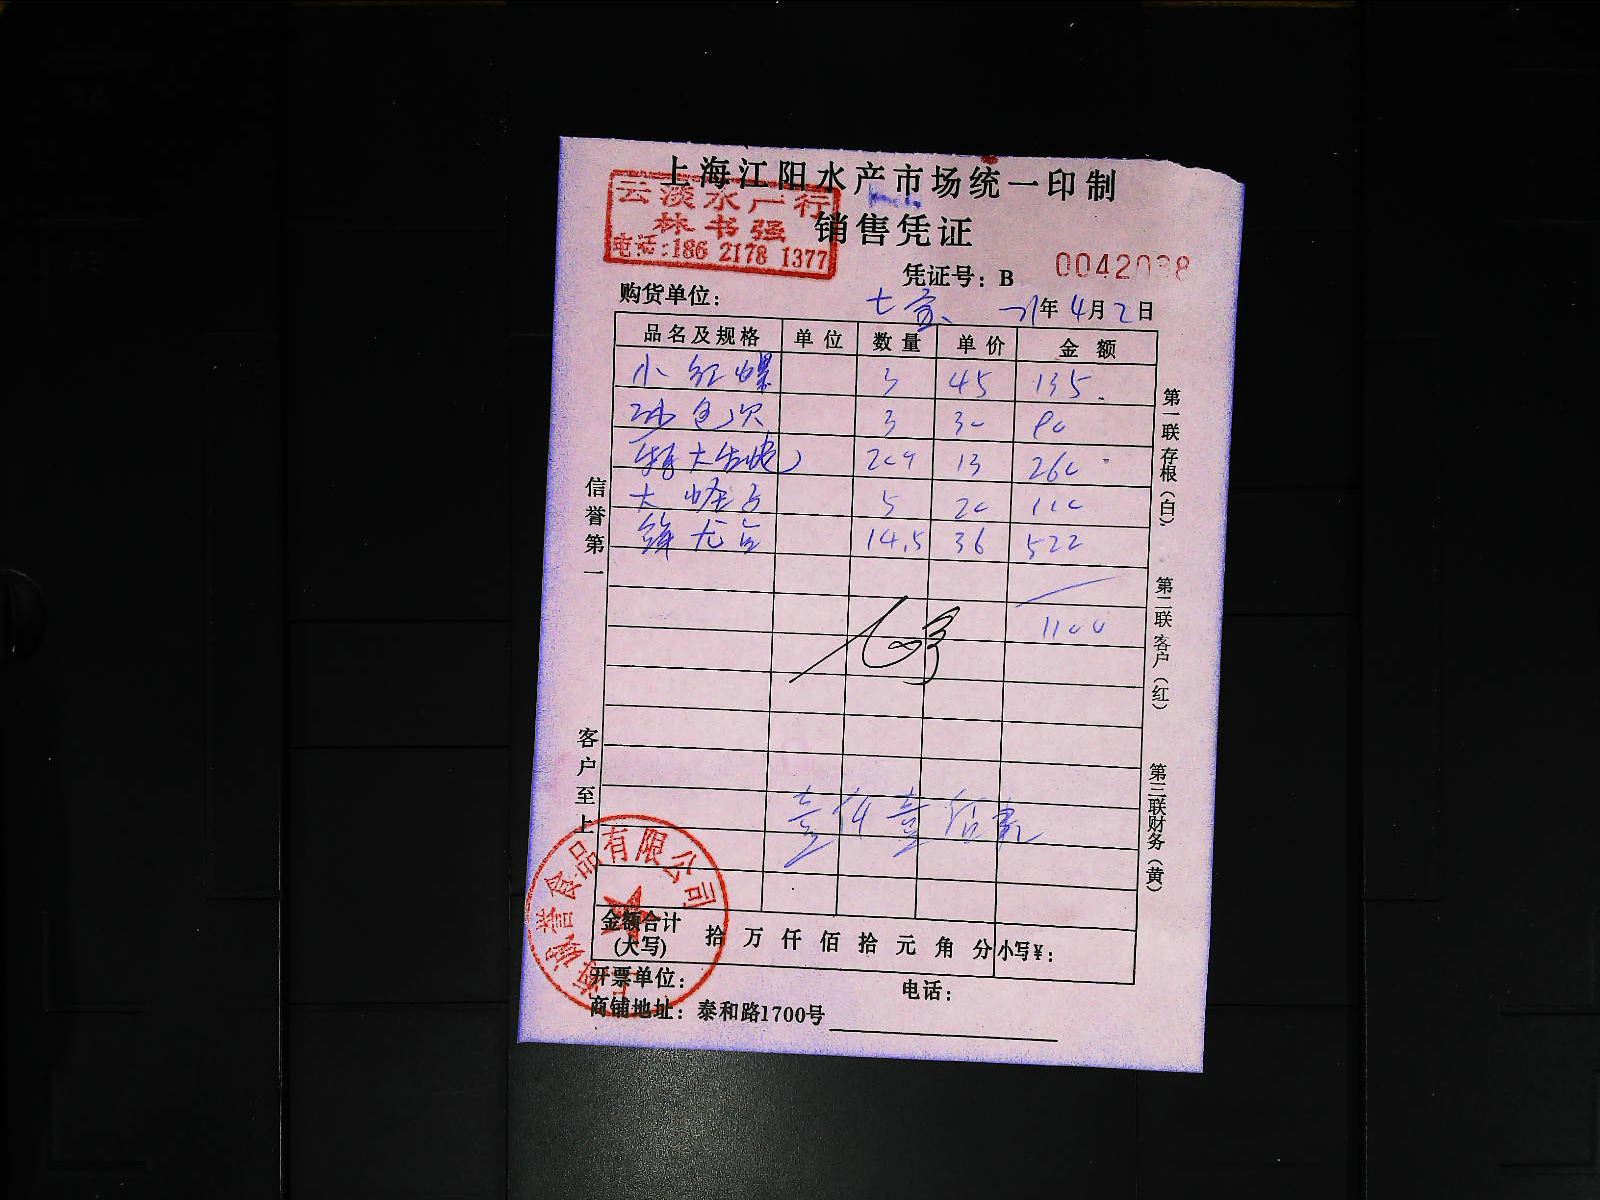 上海江阳水产市场统一印制
云淡水产行
林书强
电话:186 2178 1377
销售凭证
凭证号：B 0042038
购货单位：
年4月2日
品名及规格 单位 数量 单价 金额
小红螺 3 45 135.
3 30 90
13 260
大 5 110
14.5 36 522
1100
壹仟壹佰
信誉第一
客户至上
第一联存根（白）
第二联客户（红）
第三联财务（黄）
金额合计
(大写)
拾 万 仟 佰 拾 元 角 分 小写¥：
开票单位：
电话：
商铺地址：泰和路1700号
食品有限公司